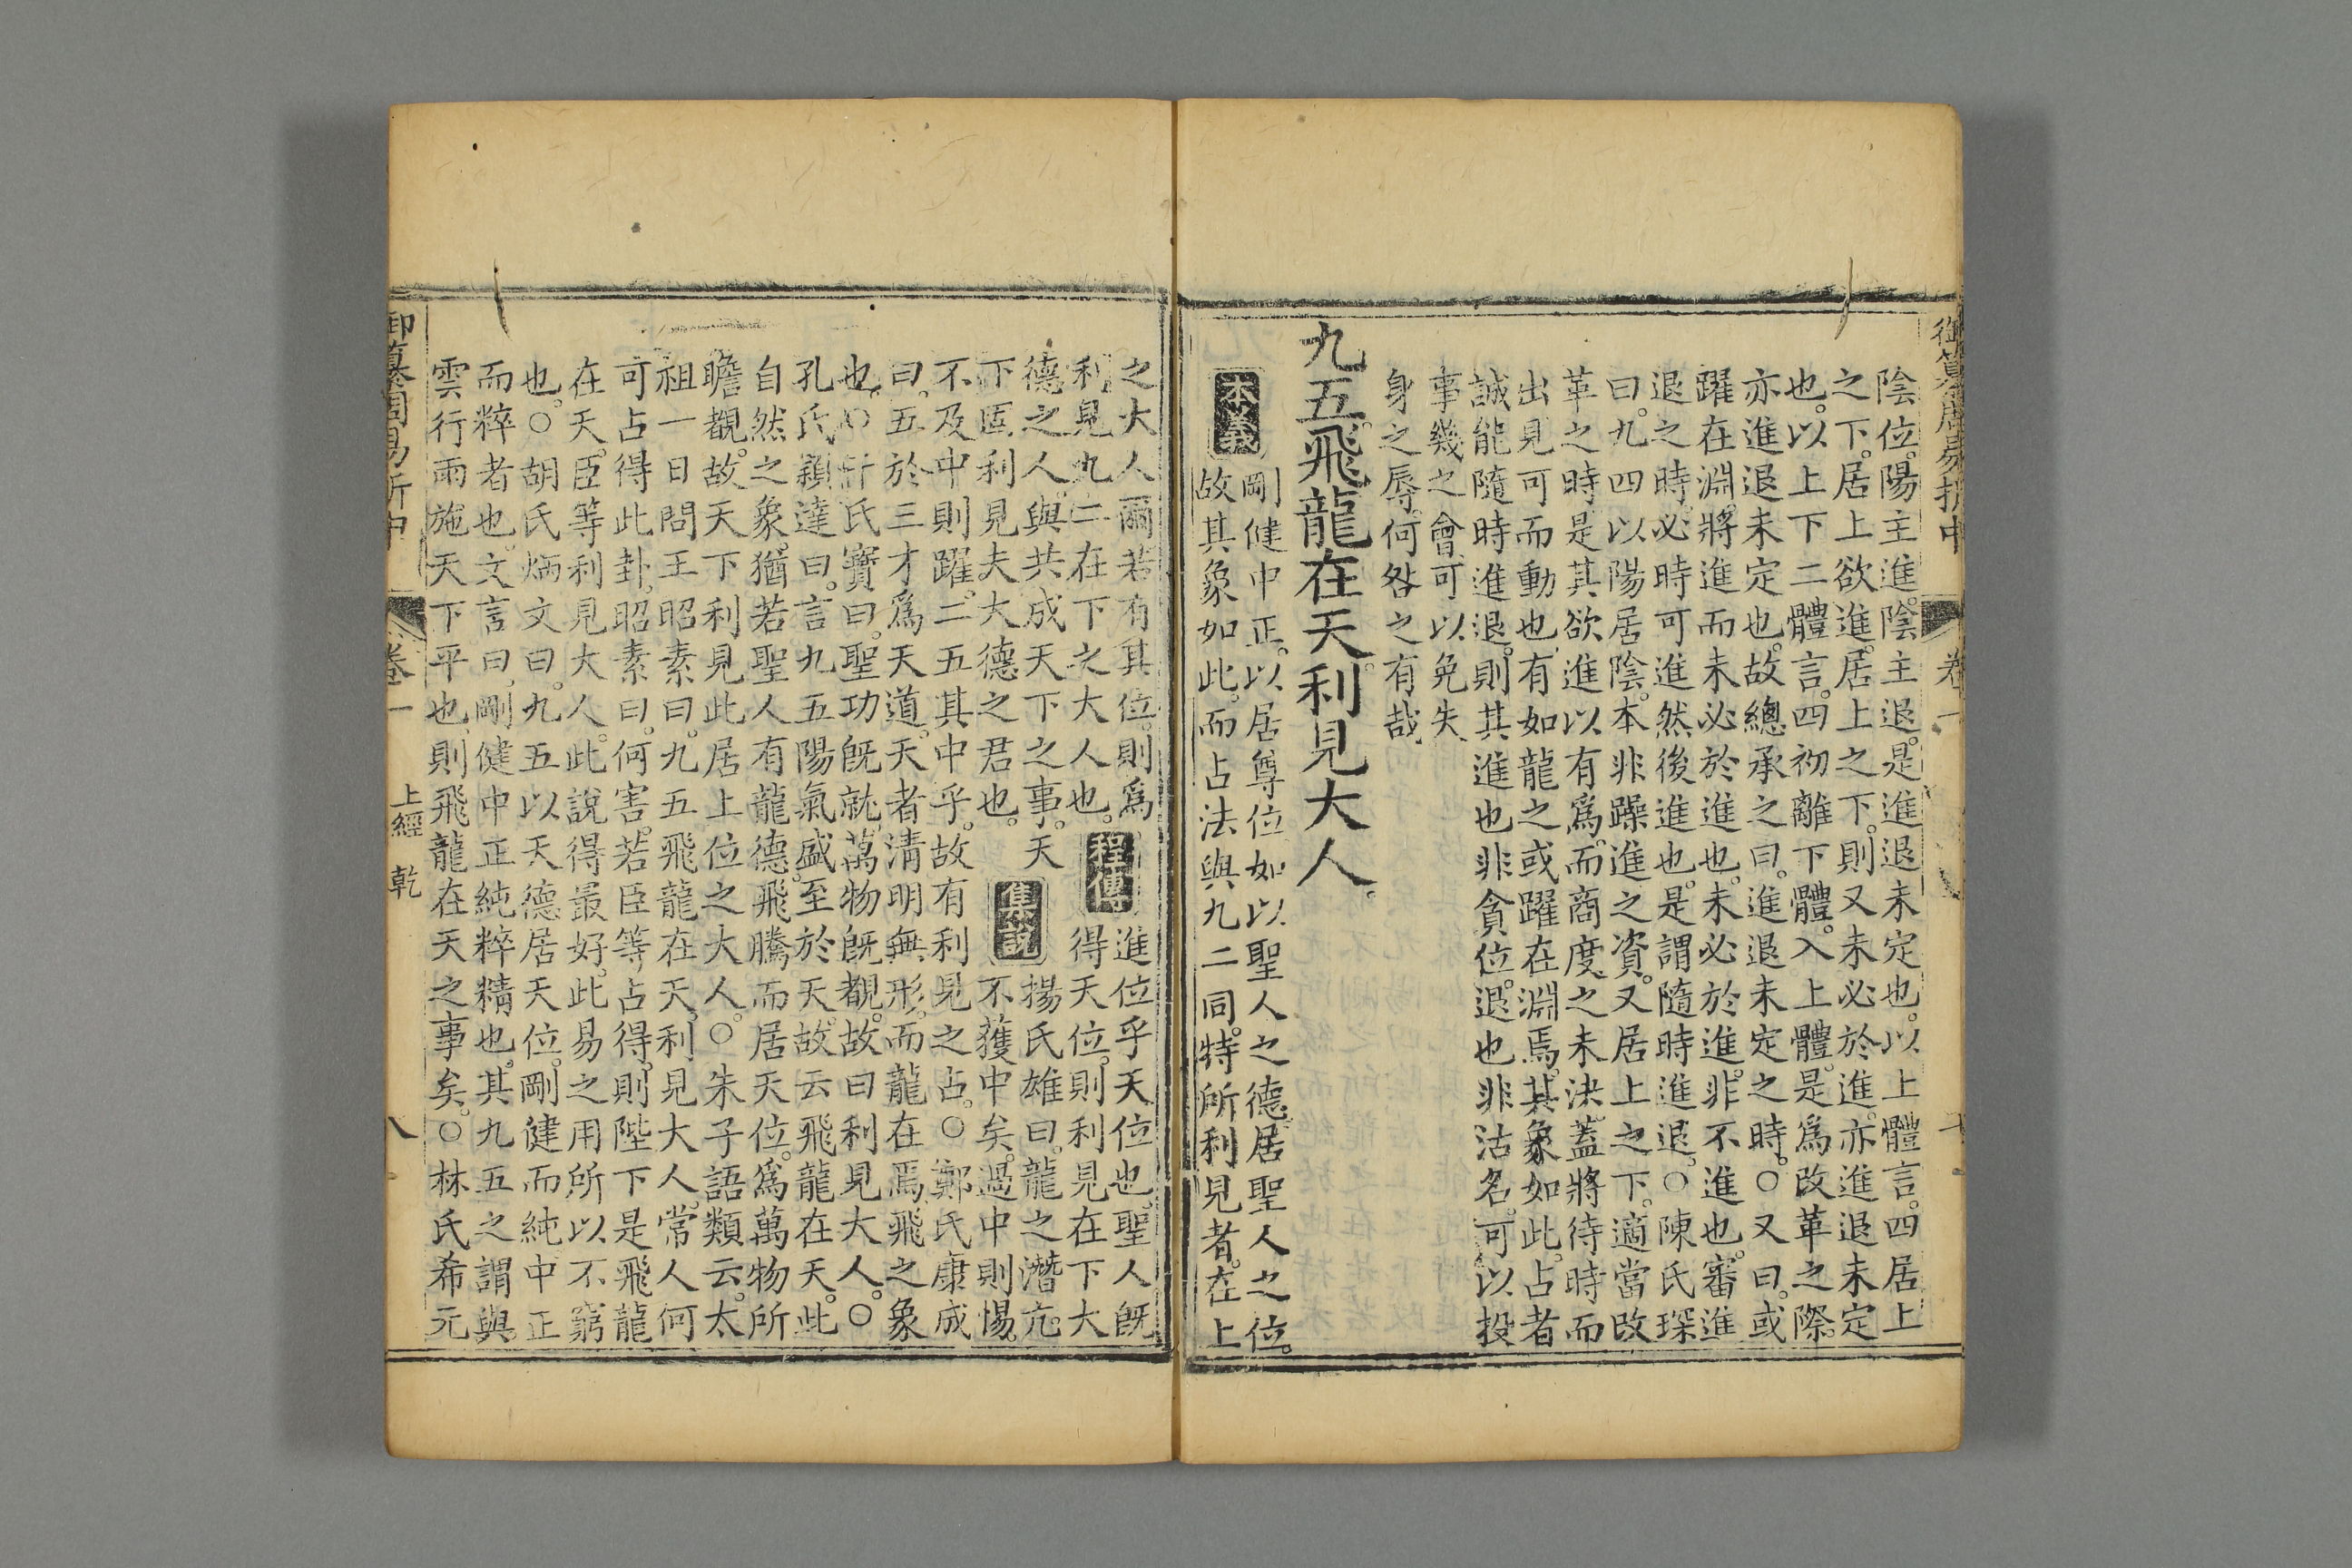 陰位。陽主進。陰主退。是進退未定也。以上體言。四居上
之下。居上欲進。居上之下。則又未必於進。亦進退未定
也。以上下二體言。四初離下體。入上體。是爲改革之際。
亦進退未定也。故總承之曰。進退未定之時。○又曰。或
躍在淵。將進而未必於進也。未必於進。非不進也。審進
退之時。必時可進然後進也。是謂隨時進退。○陳氏琛
曰。九四以陽居陰。本非躁進之資。又居上之下。適當改
革之時。是其欲進以有爲。而商度之未決。蓋將待時而
出見可而動也。有如龍之或躍在淵焉。其象如此。占者
誠能隨時進退。則其進也非貪位。退也非沽名。可以投
事幾之會。可以免失
身之辱。何咎之有哉
九五。飛龍在天。利見大人。
本義
剛健中正。以居尊位。如以聖人之德。居聖人之位。
故其象如此。而占法與九二同。特所利見者。在上
之大人爾。若有其位。則爲
利見九二在下之大人也。
程傳
進位乎天位也。聖人既
得天位。則利見在下大
德之人。與共成天下之事。天
下固利見夫大德之君也。
集說
揚氏雄曰。龍之潛亢。
不獲中矣。過中則惕。
不及中則躍。二五其中乎。故有利見之占。○鄭氏康成
曰。五於三才爲天道。天者清明無形。而龍在焉。飛之象
也。○干氏寶曰。聖功既就。萬物既覩。故曰利見大人。○
孔氏穎達曰。言九五陽氣盛至於天。故云飛龍在天。此
自然之象。猶若聖人有龍德。飛騰而居天位。爲萬物所
瞻覩。故天下利見此居上位之大人。○朱子語類云。太
祖一日問王昭素曰。九五飛龍在天。利見大人。常人何
可占得此卦。昭素曰。何害。若臣等占得。則陛下是飛龍
在天。臣等利見大人。此說得最好。此易之用所以不窮
也。○胡氏炳文曰。九五以天德居天位。剛健而純中正
而粹者也。文言曰。剛健中正純粹精也。其九五之謂與。
雲行雨施天下平也。則飛龍在天之事矣。○林氏希元
御纂周易折中
卷一
上經 乾
八